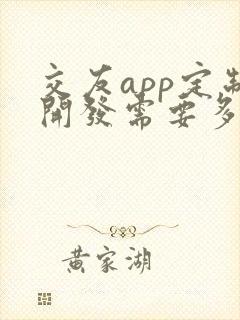 交友app定制
開發需要多
黃家湖